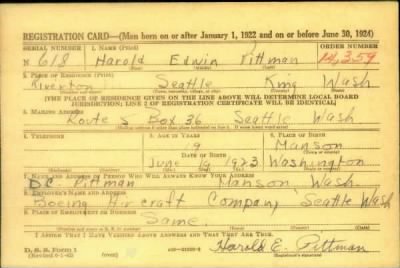 REGISTRATION CARD—(Men born on or after January 1, 1922 and on or before June 30, 1924)
SERIAL NUMBER 1. NAME (Print) ORDER NUMBER
N 618 Harold Edwin Pittman 14,359
2. PLACE OF RESIDENCE (Print)
Riverton Seattle King Wash
[THE PLACE OF RESIDENCE GIVEN ON THE LINE ABOVE WILL DETERMINE LOCAL BOARD
JURISDICTION; LINE 2 OF REGISTRATION CERTIFICATE WILL BE IDENTICAL]
3. MAILING ADDRESS
Route 5 Box 36 Seattle Wash
4. TELEPHONE 5. AGE IN YEARS 6. PLACE OF BIRTH
19 Manson
DATE OF BIRTH
June 19 1923 Washington
7. NAME AND ADDRESS OF PERSON WHO WILL ALWAYS KNOW YOUR ADDRESS
D.C. Pittman Manson Wash.
8. EMPLOYER'S NAME AND ADDRESS
Boeing Aircraft Company Seattle Wash
9. PLACE OF EMPLOYMENT OR BUSINESS
Same
I AFFIRM THAT I HAVE VERIFIED ABOVE ANSWERS AND THAT THEY ARE TRUE.
D. S. S. Form 1
(Revised 6-1-42) Harold E. Pittman
(Registrant's signature)